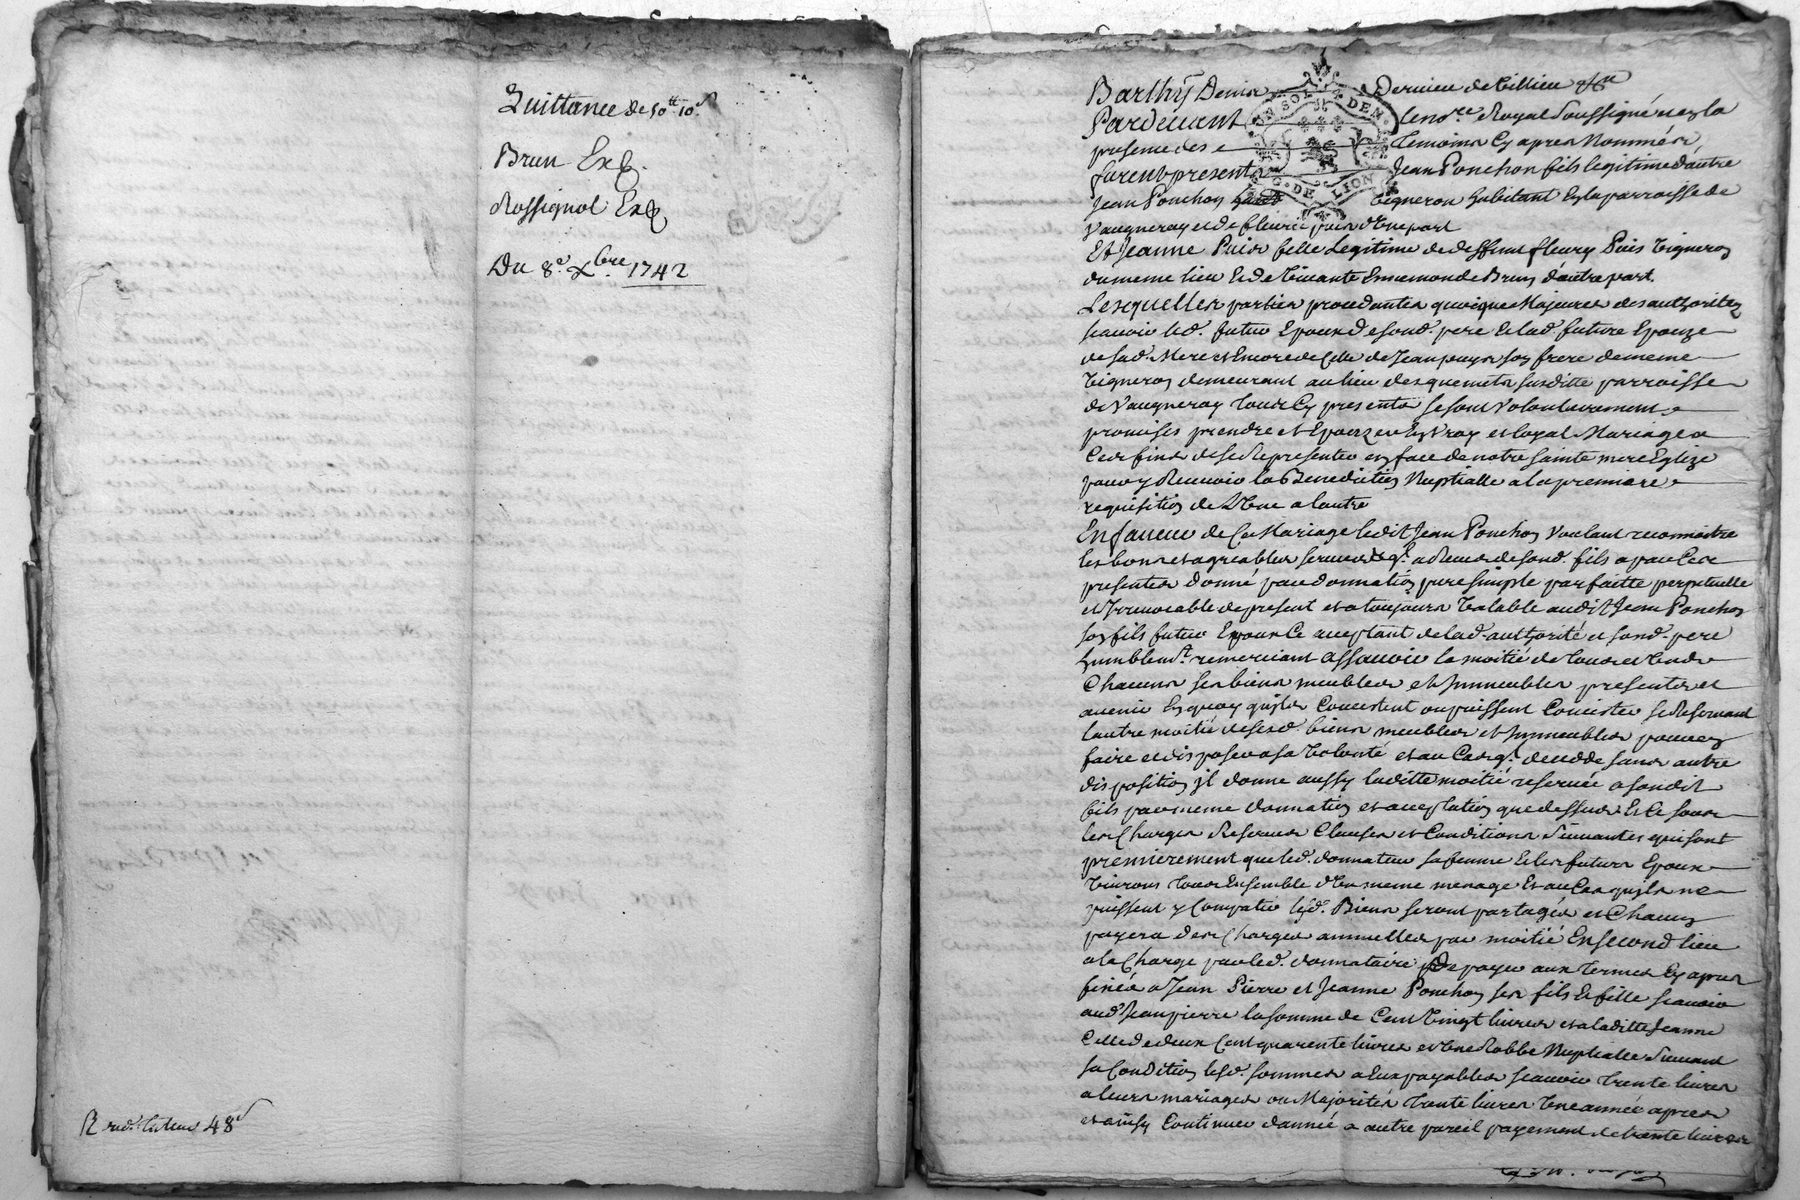 Quittance de 50ᵗᵗ 10ˢ
Brun Exp.
Rossignol Exp
Du 8ᵉ xbre 1742
48ᵈ
UN SOL 4 DEN.
G. DE LION
Barthy Denis Dernieu de Tillieu
Pardevant le noʳᵉ Royal soussigné et en la
presence des temoins cy apres nommés
furent present Jean Ponchon fils legitime d'autre
Jean Ponchon vigneron habitant en la parroisse de
Vaugneray et de d'une part
Et Jeanne Puis fille Legitime de deffunt fleury Puis Vigneron
du meme lieu et de vivante Ennemonde Brun d'autre part.
Lesquelles parties procedantes quoique Majeures des authoritez
scavoir led. futur Epoux de sond. pere et lad. future Epouze
de sad. Mere et Encore de celle de Jean puys son frere de meme
vigneron demeurant au lieu des susditte parroisse
de Vaugneray tous cy presents se sont volontairement
promises prendre et Epouzer en vray et loyal Mariage a
Ces fins de se Representer en face de notre sainte mere Eglize
pour y Recevoir la Benediction Nuptialle a la premiere
requisition de L'Une a lautre
En faveur de Ce Mariage ledit Jean Ponchon voulant reconnoitre
les bons et agreables services qˡ a Receus de sond. fils a par Ces
presentes donné par donnation pure simple parfaitte perpetuelle
et Irrevocable de present et a toujours valable audit Jean Ponchon
son fils futur Epoux Ce acceptant de lad. authorité et sond. pere
humblemᵗ. remerciant assavoir la moitié de tous et uns
Chacuns ses biens meubles et Immeubles presents et
avenir En quoy quils Concistent ou puissent Concister se Reservant
lautre moitié de sesd. biens meubles et Immeubles pour en
faire et disposer a sa volonté et au Cas qˡ. decede sans autre
disposition il donne aussy laditte moitié reservée a sondit
fils par meme donnation et acceptation que dessus Et Ce sous
les Charges Reserves Clauses et Conditions suivantes qui sont
premierement que led. donnateur sa femme et les futurs Epoux
vivront tous Ensemble d'un meme menage Et au Cas quils ne
puissent y Compatir lesd. Biens seront partagés et Chacun
payera des Charges annuelles par moitié En second lieu
a la Charge par led. donnataire de payer aux termes Cy apres
fixés a Jean Pierre et Jeanne Ponchon ses fils et fille scavoir
aud. Jean pierre la somme de Cent vingt livres et a laditte Jeanne
Celle de deux Cent quarente livres et une Robbe Nuptialle suivant
sa Condition lesd. sommes a Eux payables scavoir trente livres
a leurs mariages ou Majorités trente livres une année apres
et ainsy Continuer d'année a autre pareil payement de trente livres